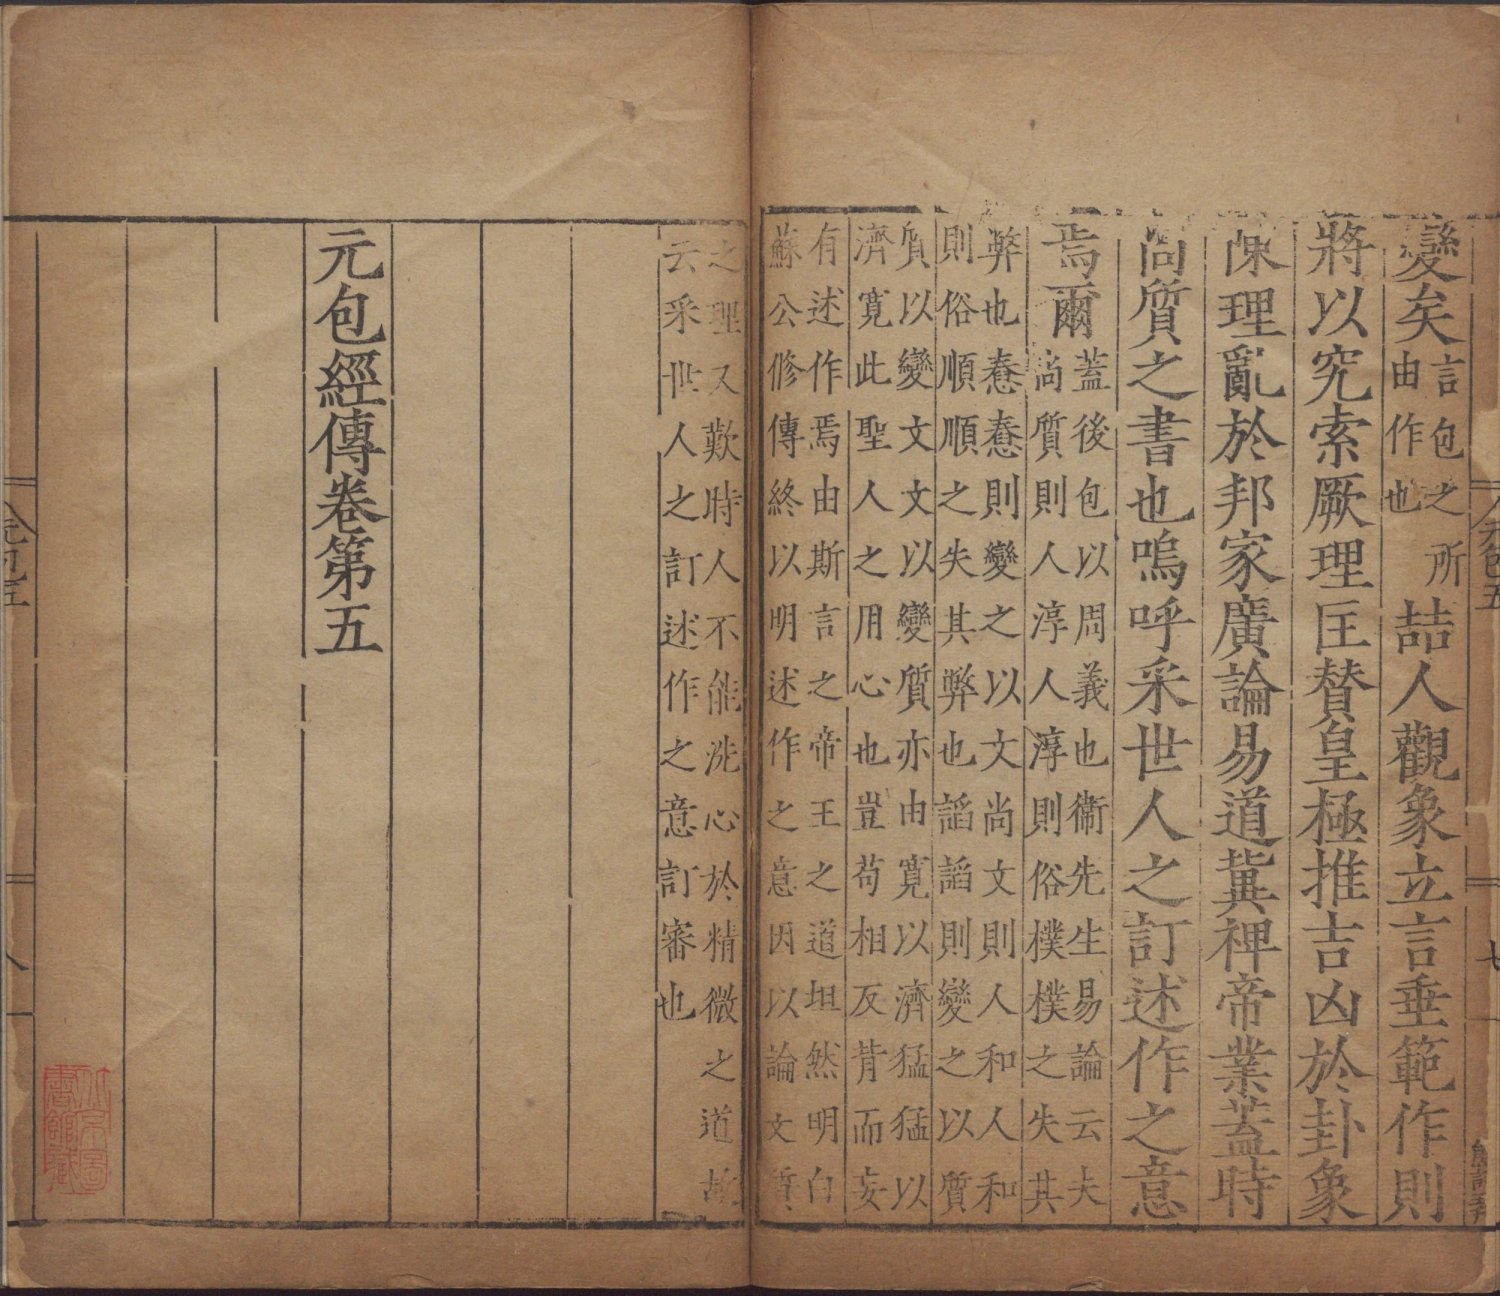 變矣言包之所
由作也喆人觀象立言垂範作則
將以究索厥理匡贊皇極推吉凶於卦象
陳理亂於邦家廣論易道冀裨帝業蓋時
尚質之書也嗚呼采世人之訂述作之意
焉爾蓋後包以周義也衞先生易論云夫
尚質則人淳人淳則俗樸樸之失其
弊也惷惷則變之以文尚文則人和人和
則俗順順之失其弊也謟謟則變之以質
質以變文文以變質亦由寬以濟猛猛以
濟寬此聖人之用心也豈苟相反背而妄
有述作焉由斯言之帝王之道坦然明白
蘇公修傳終以明述作之意因以論文質
之理又歎時人不能洗心於精微之道故
云采世人之訂述作之意訂審也
元包經傳卷第五
元包五
七
八